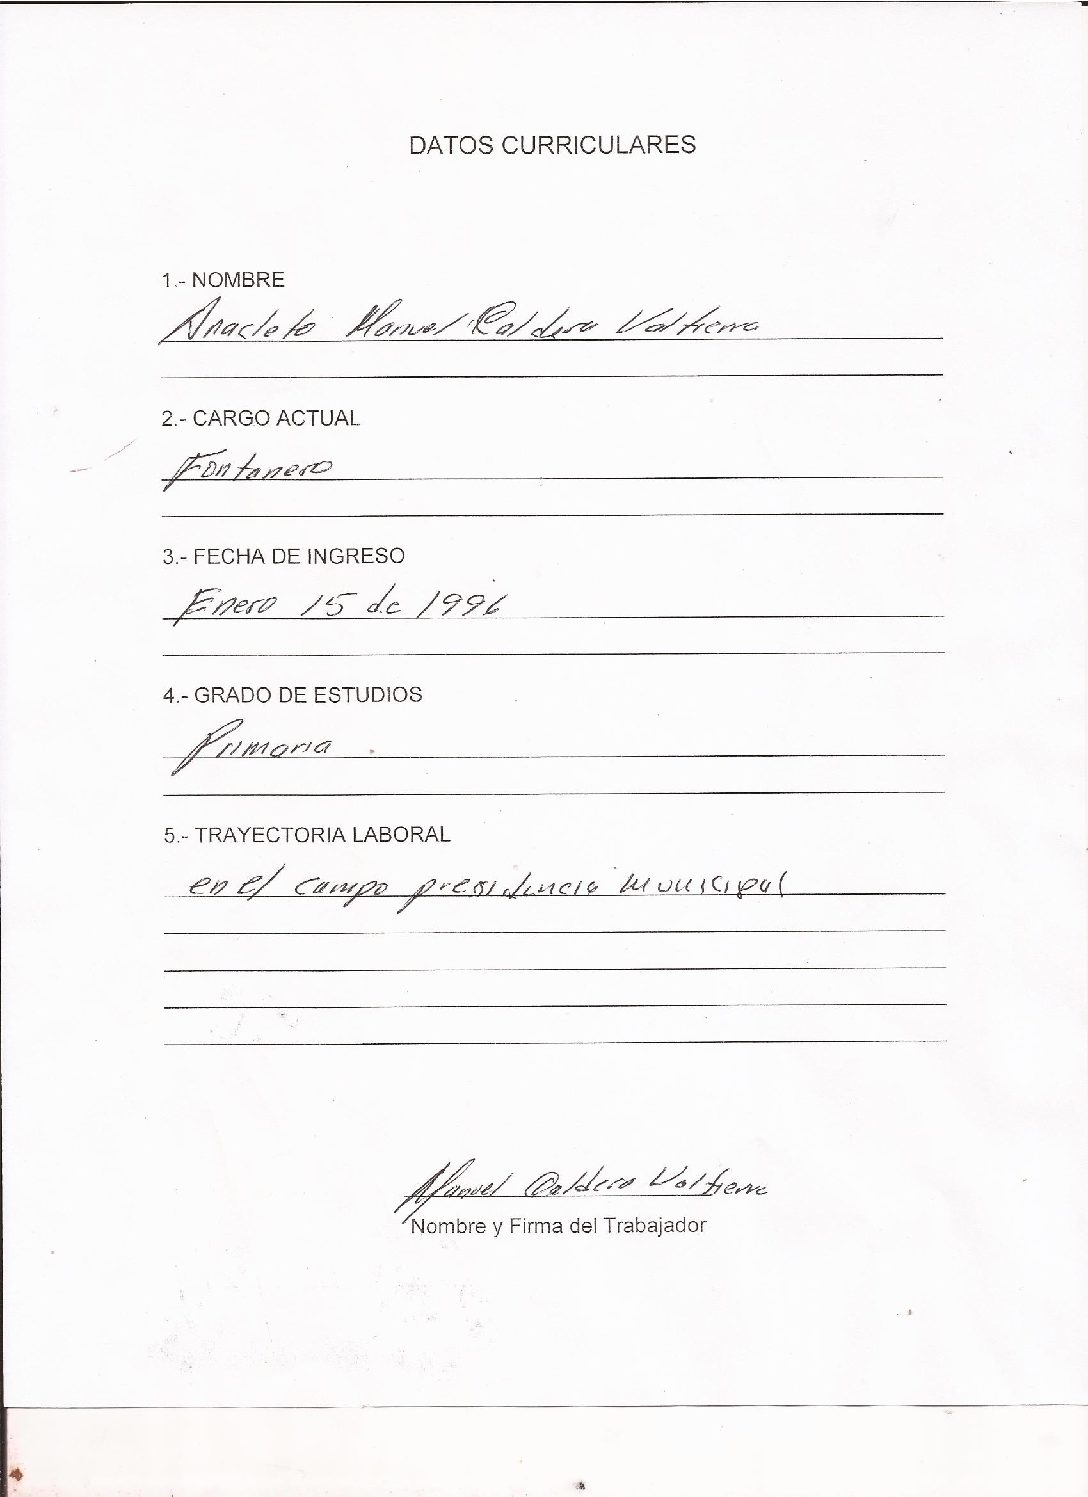 DATOS CURRICULARES
1.- NOMBRE
Anacleto Manuel Caldera Valtierra
2.- CARGO ACTUAL
Fontanero
3.- FECHA DE INGRESO
Enero 15 de 1996
4.- GRADO DE ESTUDIOS
Primaria
5.- TRAYECTORIA LABORAL
en el campo presidencia municipal
Manuel Caldera Valtierra
Nombre y Firma del Trabajador